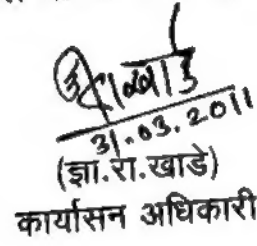 31.03.2011
(ज्ञा.रा.खाडे)
कार्यासन अधिकारी